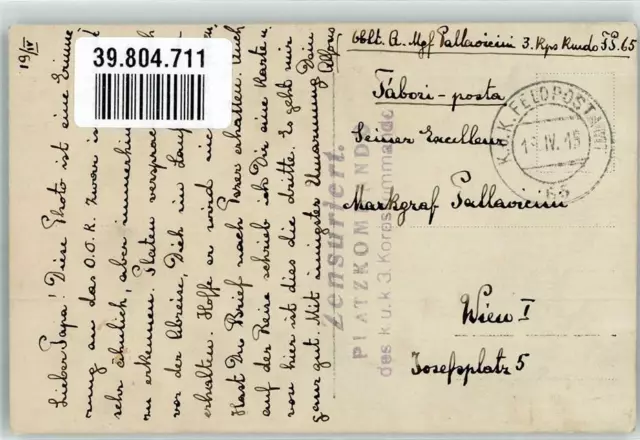 39.804.711
19/IV
Lieber Papa! Diese Photo ist eine Erinne
rung an das O.O.K. Zwar is
sehr ähnlich, aber immerhin
zu erkennen. Platen versprach
vor der Abreise, Dich im Lauf
erhalten. Hoffe er wird
Hast Du Brief nach Perer erhalten. Auch
auf der Reise schrieb ich Dir eine Karte u.
von hier ist dies die dritte. Es geht mir
ganz gut. Mit innigster Umarmung Dein
Alfons
Oblt. A. Mgf Pallavicini 3. Kps Kmdo F.P. 65
Tábori-posta
Seiner Excellenz
Markgraf Pallavicini
Wien I
Josefsplatz 5
K.u.K. FELDPOSTAMT
IV. 15
65
Zensuriert.
PLATZKOMMANDO
des k.u.k. 3. Korpskommandos